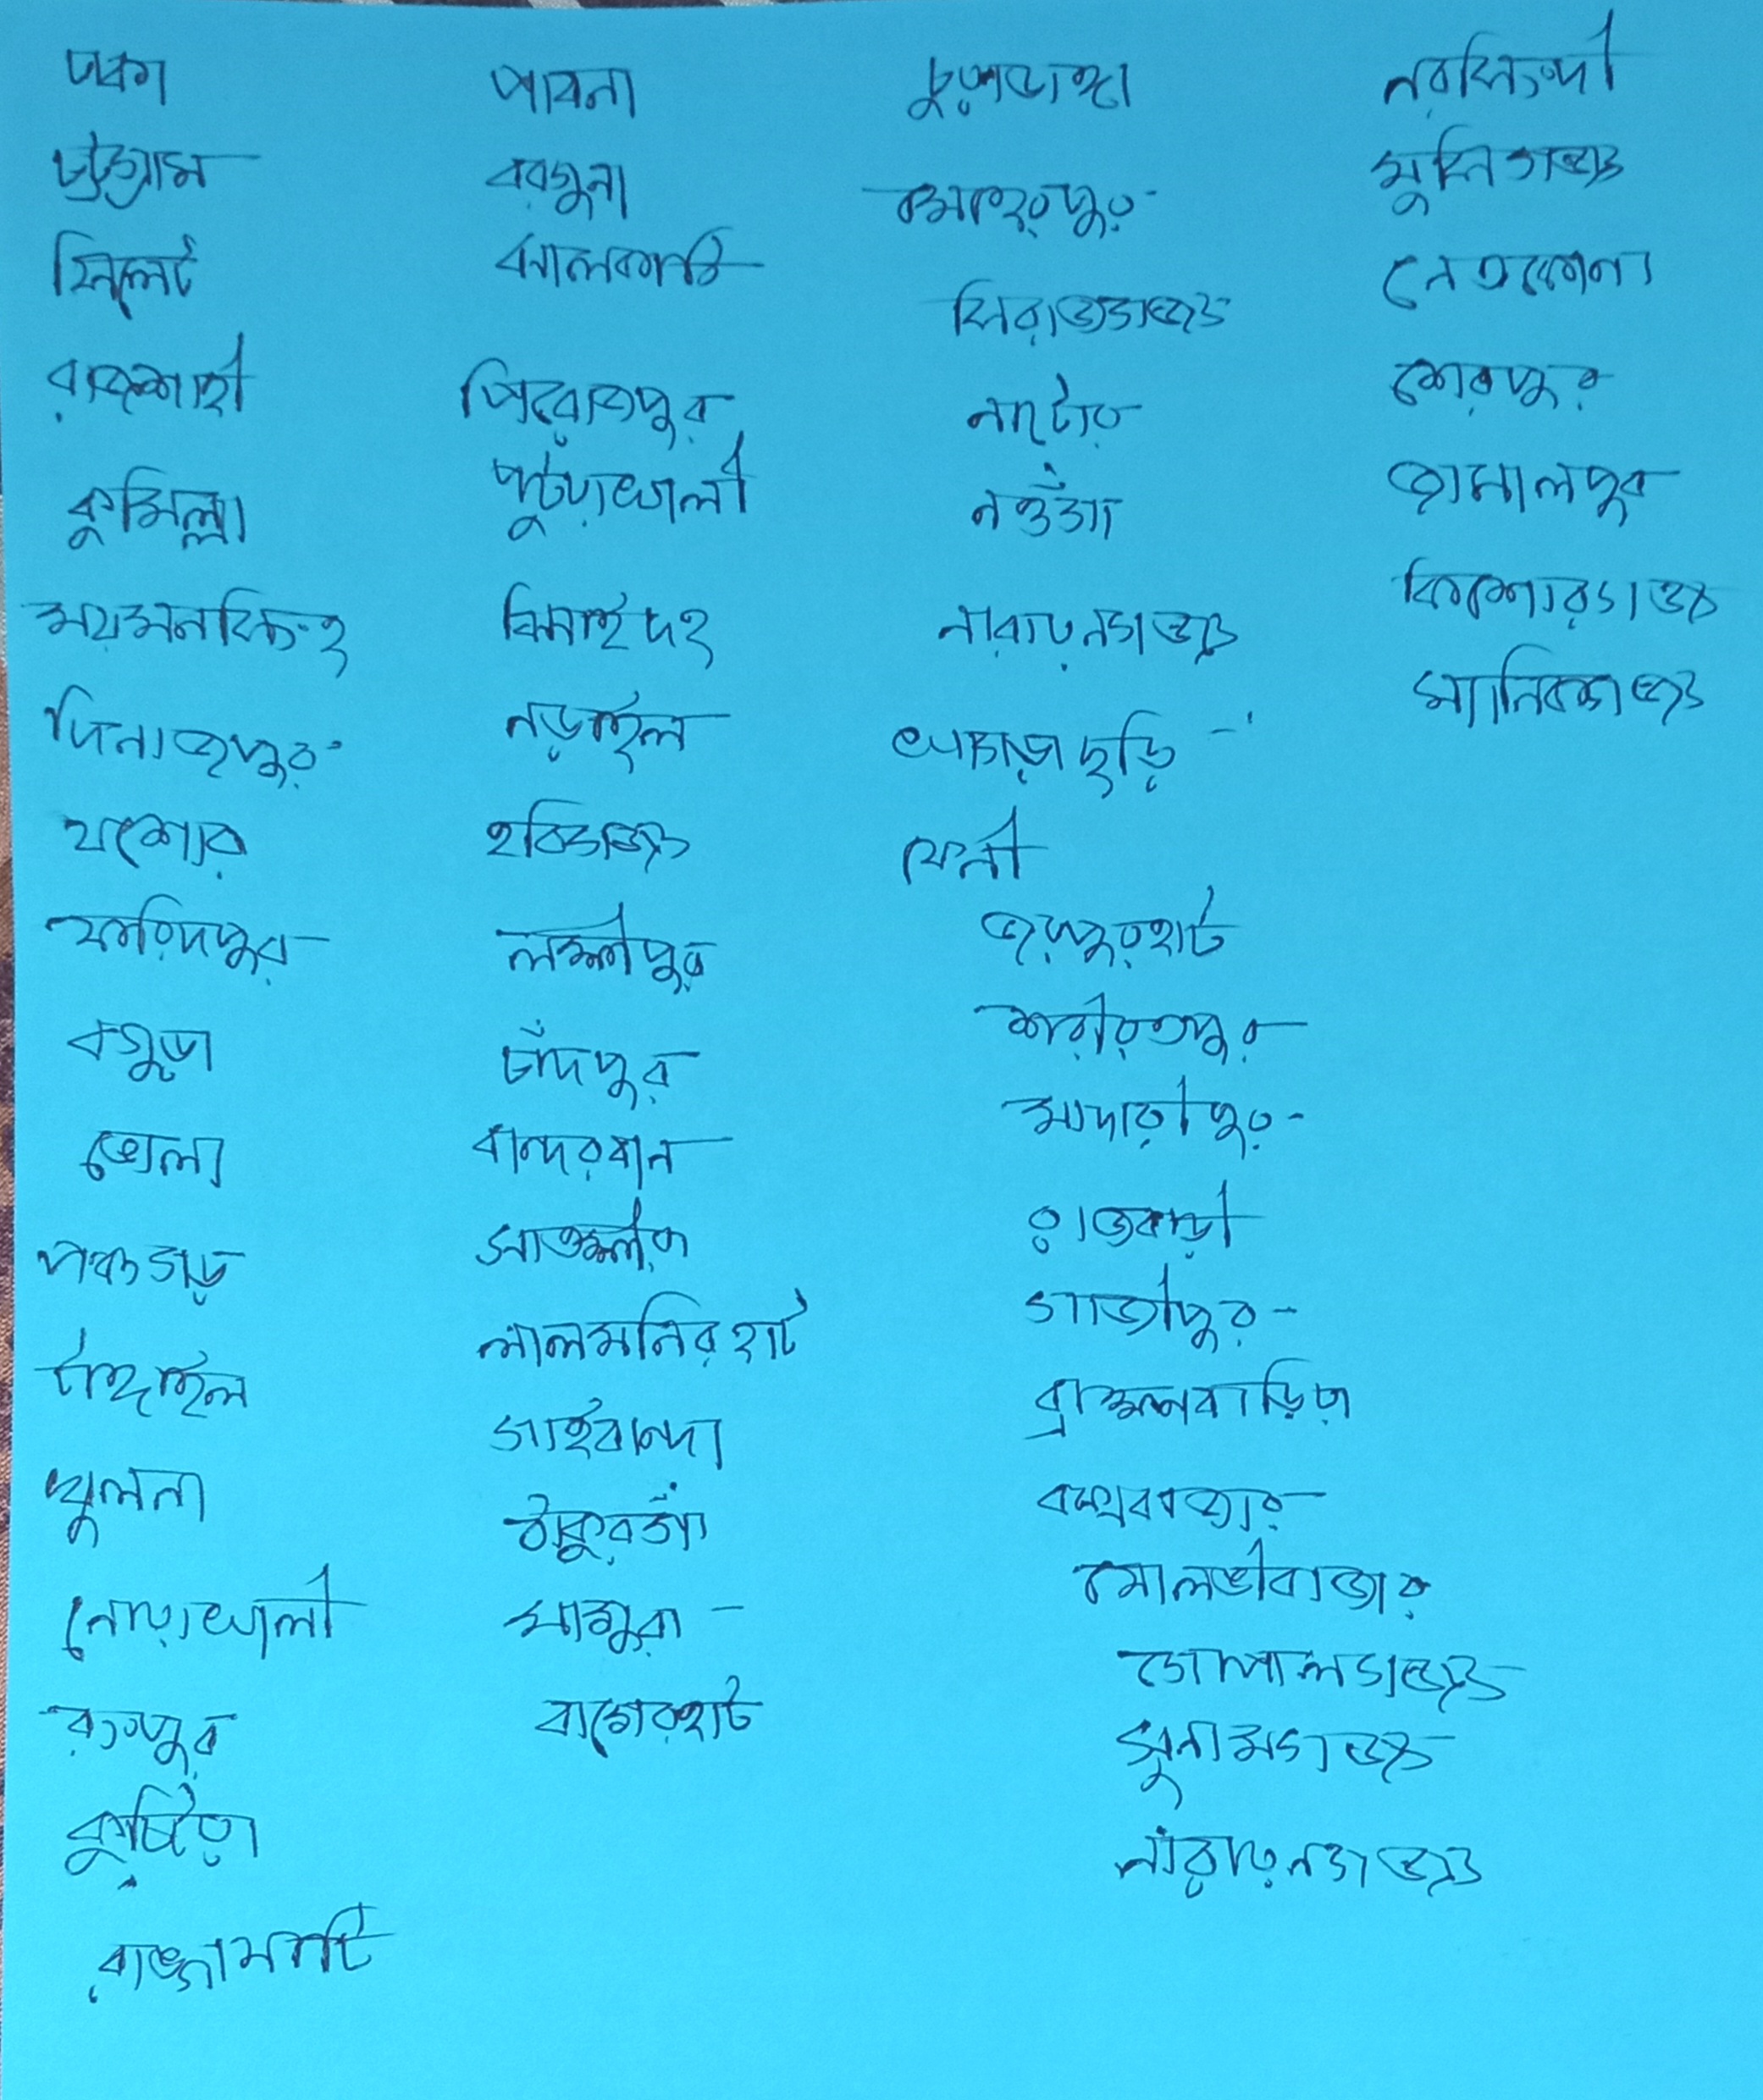 ঢাকা
চট্টগ্রাম
সিলেট
রাজশাহী
কুমিল্লা
ময়মনসিংহ
দিনাজপুর
যশোর
ফরিদপুর
বগুড়া
ভোলা
পঞ্চগড়
টাঙ্গাইল
খুলনা
নোয়াখালী
রংপুর
কুষ্টিয়া
রাঙ্গামাটি
পাবনা
বরগুনা
ঝালকাঠি
পিরোজপুর
পটুয়াখালী
ঝিনাইদহ
নড়াইল
হবিগঞ্জ
লক্ষ্মীপুর
চাঁদপুর
বান্দরবান
সাতক্ষীরা
লালমনিরহাট
গাইবান্দা
ঠাকুরগাঁ
মাগুরা
বাগেরহাট
চুয়াডাঙ্গা
মেহেরপুর
সিরাজগঞ্জ
নাটোর
নওগাঁ
নারায়নগঞ্জ
খাগড়াছড়ি
ফেনী
জয়পুরহাট
শরীয়তপুর
মাদারীপুর
রাজবাড়ী
গাজীপুর
ব্রাহ্মনবাড়িয়া
কক্সবাজার
মৌলভীবাজার
গোপালগঞ্জ
সুনামগঞ্জ
নারায়নগঞ্জ
নরসিংদী
মুন্সিগঞ্জ
নেত্রকোনা
শেরপুর
জামালপুর
কিশোরগঞ্জ
মানিকগঞ্জ